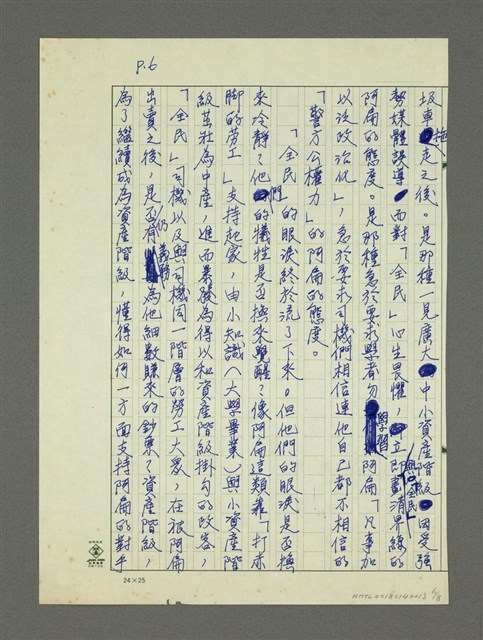 P.6
圾車拖走之後。是那種一見廣大中小資產階級因受強
勢媒體誤導而對「全民」心生畏懼,立即與「全民」劃清界線的
阿扁的態度。是那種急於要求學者勿學習阿扁「凡事加
以泛政治化」,急於要求司機們相信連他自己都不相信的
「警方公權力」的阿扁的態度。
「全民」的眼淚終於流了下來。但他們的眼淚是否換
來冷靜?他們的犧牲是否換來覺醒?像阿扁這類靠「打赤
脚的勞工」支持起家,由小知識(大學畢業)與小資產階
級茁壯為中產,進而暴發為得以和資產階級掛勾的政客,
「全民」司機以及與司機同一階層的勞工大眾,在被阿扁
出賣之後,是否仍有義務為他細數賺來的鈔票?資產階級,
為了繼續成為資產階級,懂得如何一方面支持阿扁的對手
24×25
NMTL20180140013 6/8